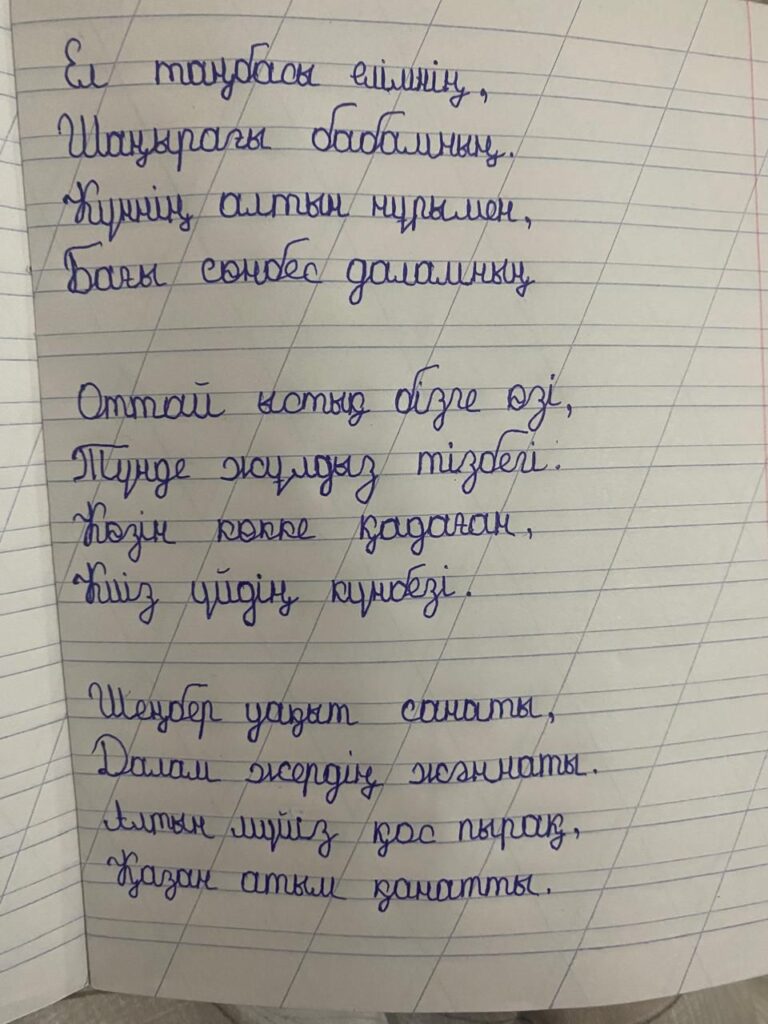 Ел таңбасы елімнің,
Шаңырағы бабамның.
Күннің алтын нұрымен,
Бағы сөнбес даламның
Оттай ыстық бізге өзі,
Түнде жұлдыз тізбегі.
Көзін көкке қадаған,
Киіз үйдің күнбезі.
Шеңбер уақыт санаты,
Далам жердің жәннаты.
Алтын мүйіз қос пырақ,
Қазан атым қанатты.